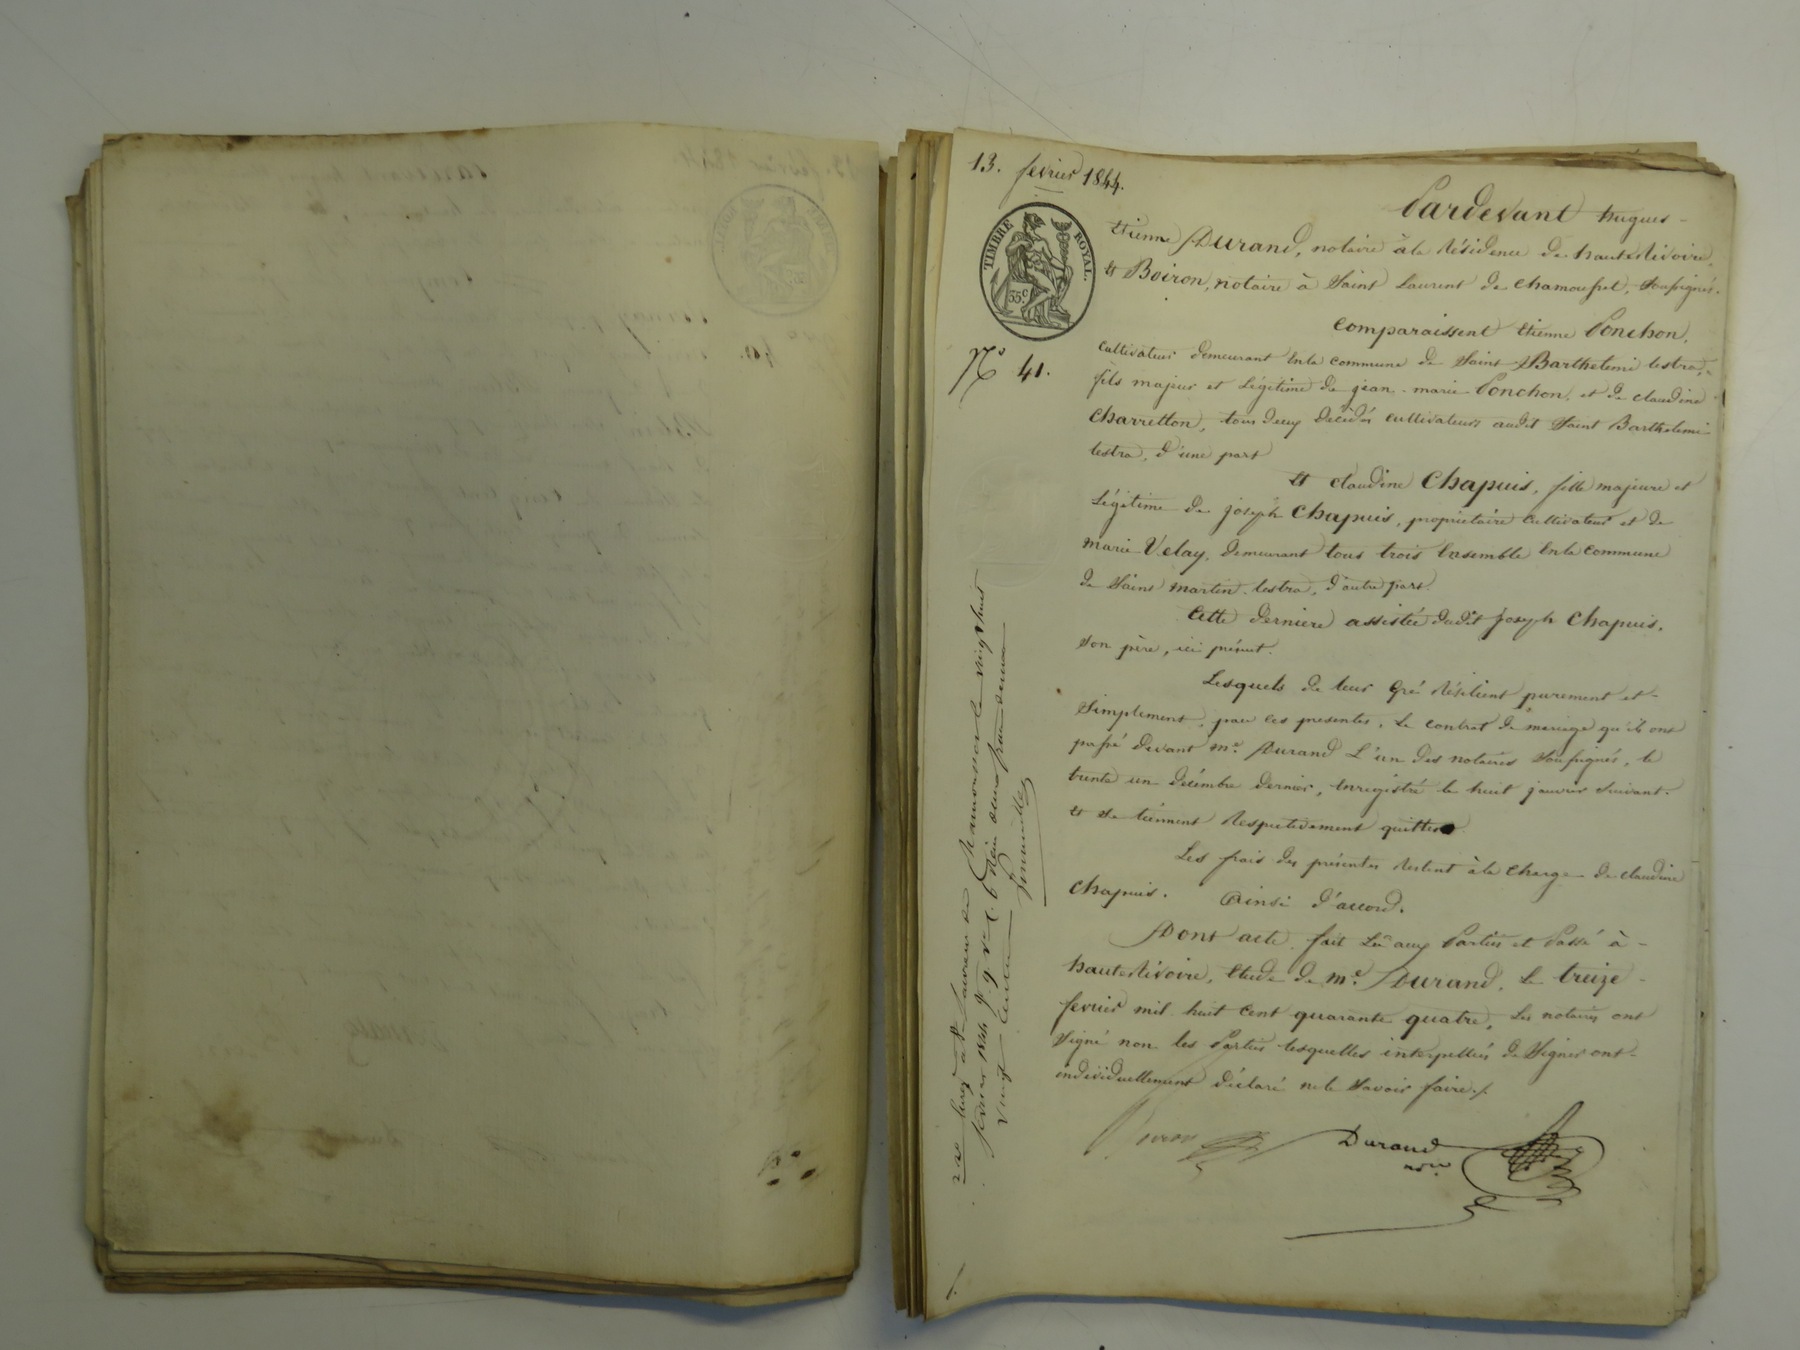 13. fevrier 1844.
TIMBRE ROYAL.
35 c
N° 41.
Pardevant hugues
Etienne Durand, notaire à la Résidence de hauterivoire,
Et Boiron, notaire à Saint Laurent de chamousset, soussignés.
comparaissent Etienne Ponchon,
cultivateur demeurant En la commune de Saint Barthelemi lestra,
fils majeur et Légitime de jean-marie Ponchon, et de claudine
Charretton, tous deux décédés cultivateurs audit Saint Barthelemi
lestra, d'une part
Et claudine Chapuis, fille majeure et
Légitime de joseph Chapuis, propriétaire cultivateur et de
marie Velay, demeurant tous trois Ensemble En la commune
de Saint martin-lestra, d'autre part.
Cette dernière assistée dudit joseph Chapuis,
son père, ici présent.
Lesquels de leur Gré Résilient purement et
simplement, par ces présentes, Le contrat de mariage qu'ils ont
passé devant me. Durand L'un des notaires soussignés, le
trente un décembre dernier, Enregistré le huit janvier suivant.
Et se tiennent Respectivement quittes
Les frais des présentes Restent à la charge de claudine
Chapuis. Ainsi d'accord.
Dont acte, fait Lu aux Parties et Passé à
hauterivoire, Etude de me. Durand, Le treize
fevrier mil huit Cent quarante quatre, Les notaires ont
signé non les Parties lesquelles interpellées de signer ont
individuellement déclaré ne le savoir faire./.
Boiron
Durand
nre
Enreg à St Laurent de Chamousset le vingt huit
fevrier 1844 fo 9 vo c. 6 Reçu deux francs
vingt centimes